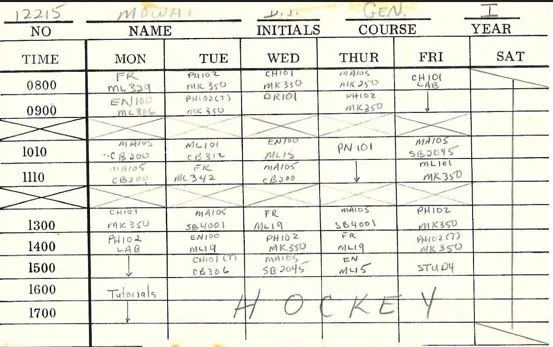 12215 MOWAT D.J. GEN. I
NO NAME INITIALS COURSE YEAR
TIME MON TUE WED THUR FRI SAT
0800 FR PH102 CH101 MA105 CH101
ML329 MK350 MK350 MK250 LAB
0900 EN100 PH102(T) DR101 PH102
ML306 MK350 MK350
1010 MA105 ML101 EN100 PN101 MA105
CB200 CB312 ML15 SB2045
1110 MA105 FR MA105 ML101
CB200 ML342 CB200 MK350
1300 CH101 MA105 FR MA105 PH102
MK350 SB4001 ML19 SB4001 MK350
1400 PH102 EN100 PH102 FR PH102(T)
LAB ML19 MK350 ML19 MK350
1500 CH101(T) MA105 EN STUDY
CB306 SB2045 ML15
1600 Tutorials
HOCKEY
1700